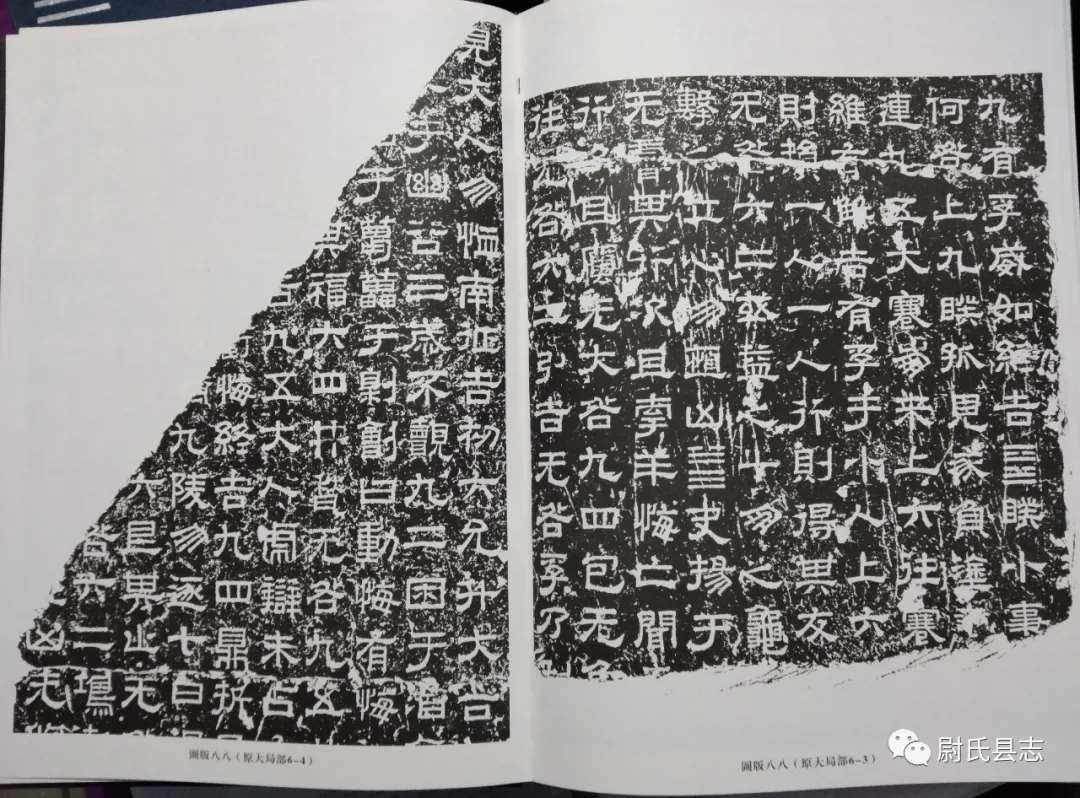 九有孚威如終吉䷥睽小事
何咎上九睽孤見豕負塗
連九五大蹇朋來上六往蹇
維有解吉有孚于小人上六
財損一人一人行則得其友
无咎六二或益之十朋之龜
擊之立心勿恆凶䷪夬揚于
无膚其行次且牽羊悔亡聞
行次且厲无大咎九四包无魚
往无咎六二引吉无咎孚乃
圖版八八（原大局部6-3）
見大人勿恤南征吉初六允升大吉
于幽谷三歲不覿九二困于酒
于葛藟于劓劊曰動悔有悔
其福六四井甃无咎九五
吉九五大人虎辯未占
悔終吉九四鼎折
九陵勿逐七日
六艮其止无
咎六二鴻
凶无
圖版八八（原大局部6-4）
尉氏县志